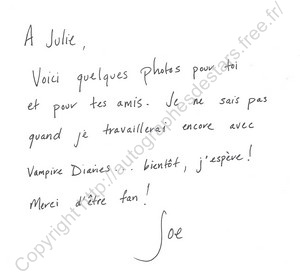 A Julie,
Voici quelques photos pour toi
et pour tes amis. Je ne sais pas
quand je travaillerai encore avec
Vampire Diaries... bientôt, j'espère!
Merci d'être fan!
Joe
Copyright http://autographesdestars.free.fr/